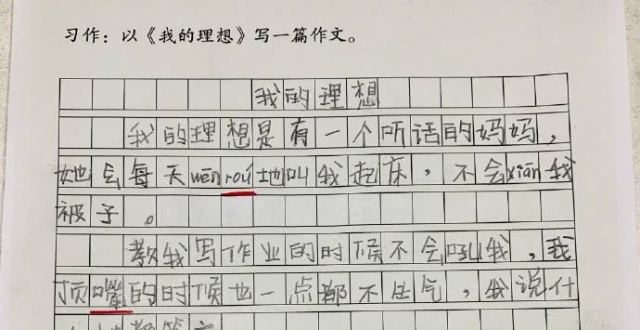 习作：以《我的理想》写一篇作文。
我的理想
我的理想是有一个听话的妈妈，
她会每天wēn róu地叫我起床，不会xiān我
被子。
教我写作业的时候不会吼我，我
顶嘴的时候也一点都不生气，我说什